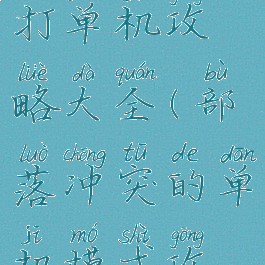 打单机攻
lüè dà quán bù
略大全(部
luò chōng tū de dān
落冲突的单
jī mó shì gōng
机模式攻